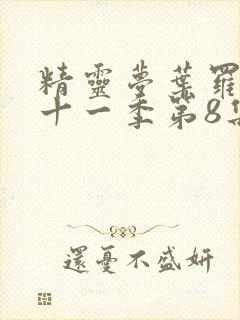 精靈夢葉羅
十一季第8集
還憂不盛妍